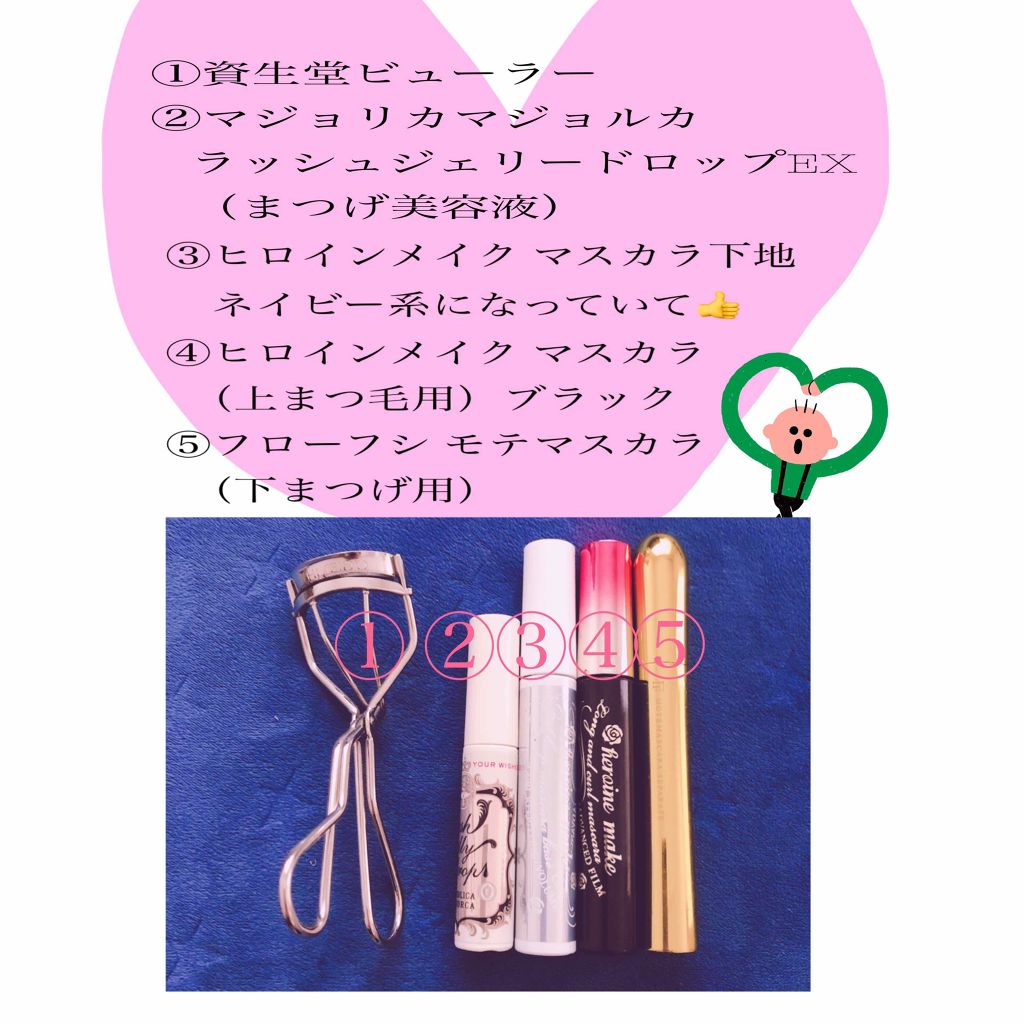 ①資生堂ビューラー
②マジョリカマジョルカ
ラッシュジェリードロップEX
（まつげ美容液）
③ヒロインメイク マスカラ下地
ネイビー系になっていて👍
④ヒロインメイク マスカラ
（上まつ毛用） ブラック
⑤フローフシ モテマスカラ
（下まつげ用）
① ② ③ ④ ⑤
YOUR WISH
heroine make
Long and curl mascara
ADVANCED FILM